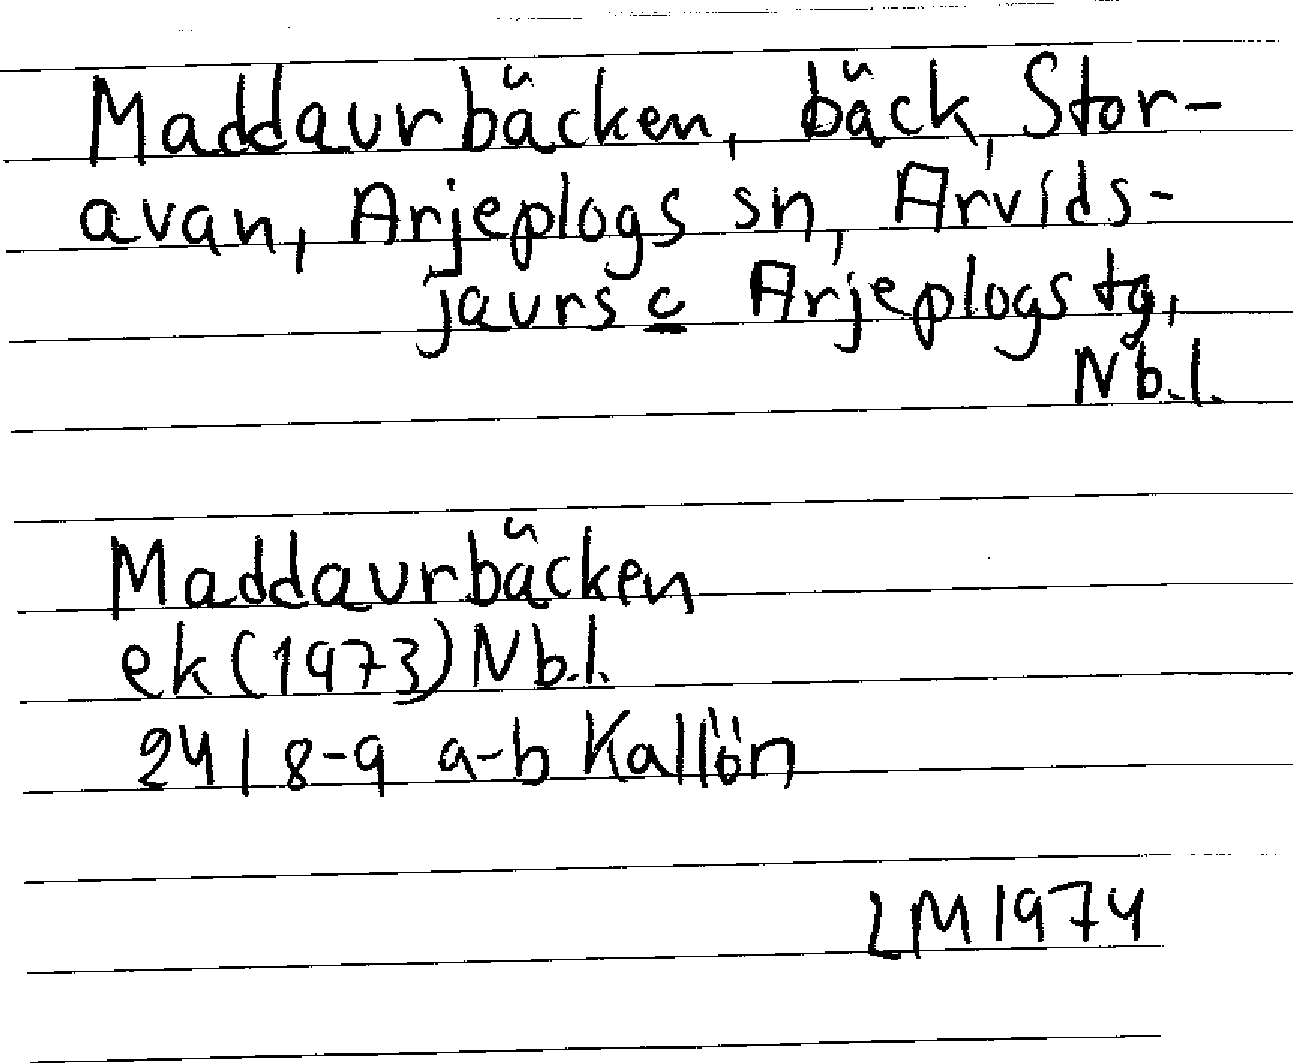 Maddaurbäcken, bäck, Stor-
avan, Arjeplogs sn, Arvids-
jaurs o Arjeplogs tg,
Nb.l.
Maddaurbäcken
ek (1973) Nb.l.
24 I 8-9 a-b Kallön
LM 1974